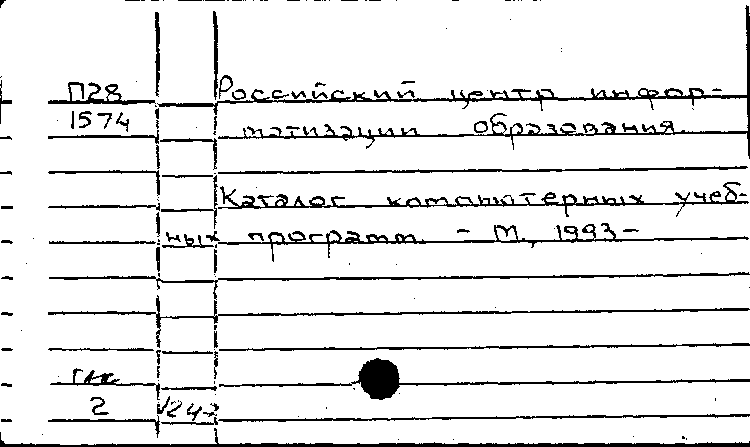 П28 Российский центр инфор-
1574 матизации образования.
Каталог компьютерных учеб-
ных программ. - М., 1993-
2